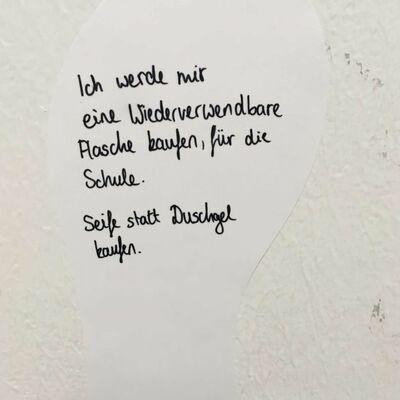 Ich werde mir
eine Wiederverwendbare
Flasche kaufen, für die
Schule.
Seife statt Duschgel
kaufen.